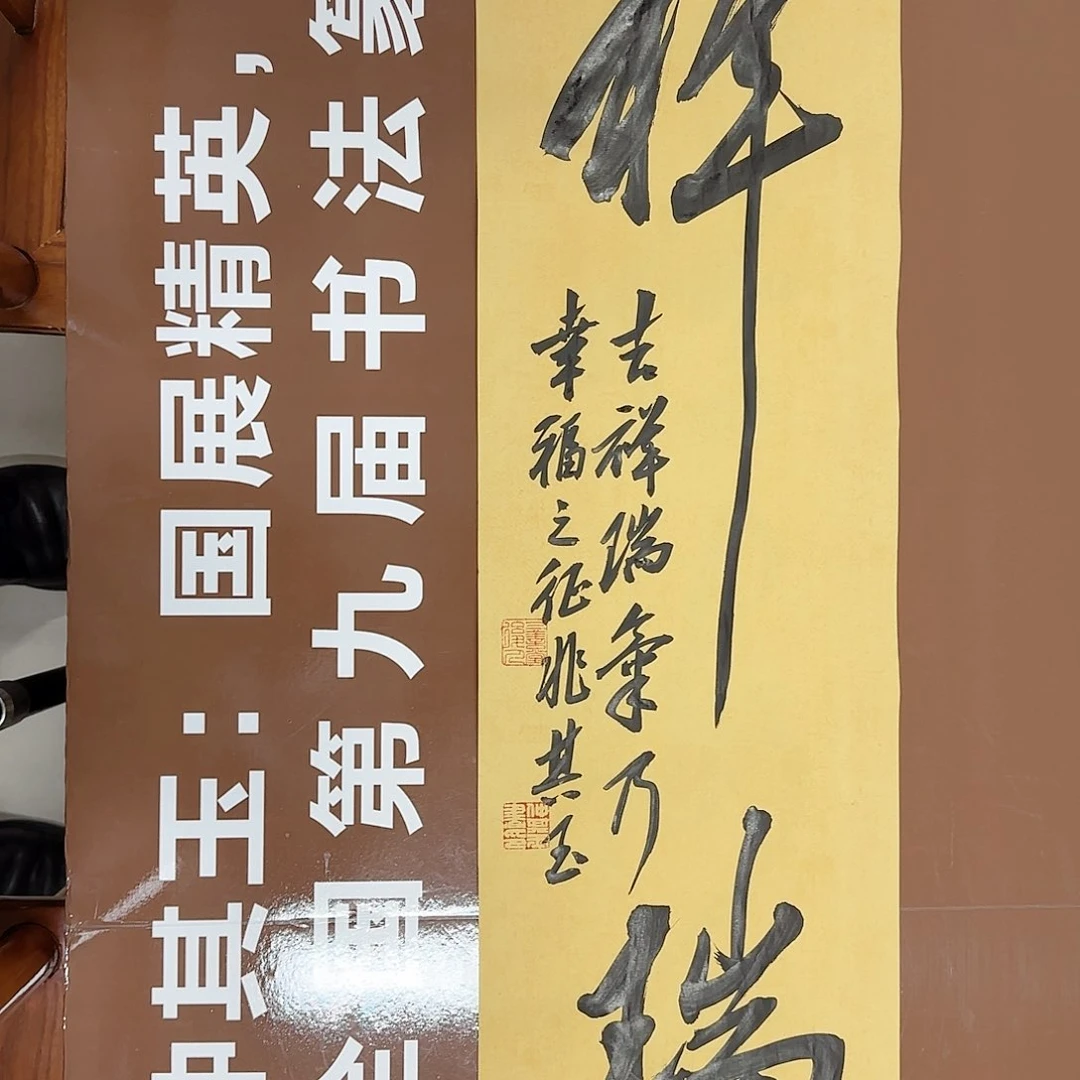 其玉：国展精英，
全国第九届书法篆
祥
瑞
吉祥瑞氣乃
幸福之征兆其玉